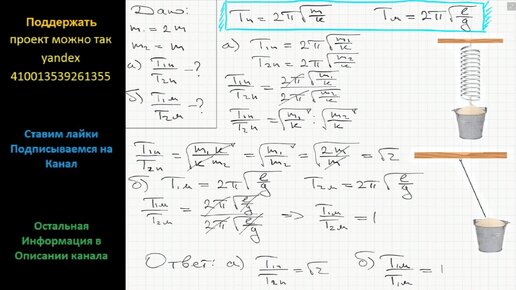 Поддержать
проект можно так
yandex
410013539261355
Ставим лайки
Подписываемся на
Канал
Остальная
Информация в
Описании канала
Дано:
m₁ = 2m
m₂ = m
а) T₁п/T₂п - ?
б) T₁м/T₂м - ?
Tп = 2π√(m/k) Tм = 2π√(ℓ/g)
а) T₁п = 2π√(m₁/k)
T₂п = 2π√(m₂/k)
T₁п/T₂п = 2π√(m₁/k) / 2π√(m₂/k)
T₁п/T₂п = √(m₁/k) : √(m₂/k)
T₁п/T₂п = √(m₁ k/k m₂) = √(m₁/m₂) = √(2m/m) = √2
б) T₁м = 2π√(ℓ/g) T₂м = 2π√(ℓ/g)
T₁м/T₂м = 2π√(ℓ/g) / 2π√(ℓ/g) => T₁м/T₂м = 1
Ответ: а) T₁п/T₂п = √2 б) T₁м/T₁м = 1